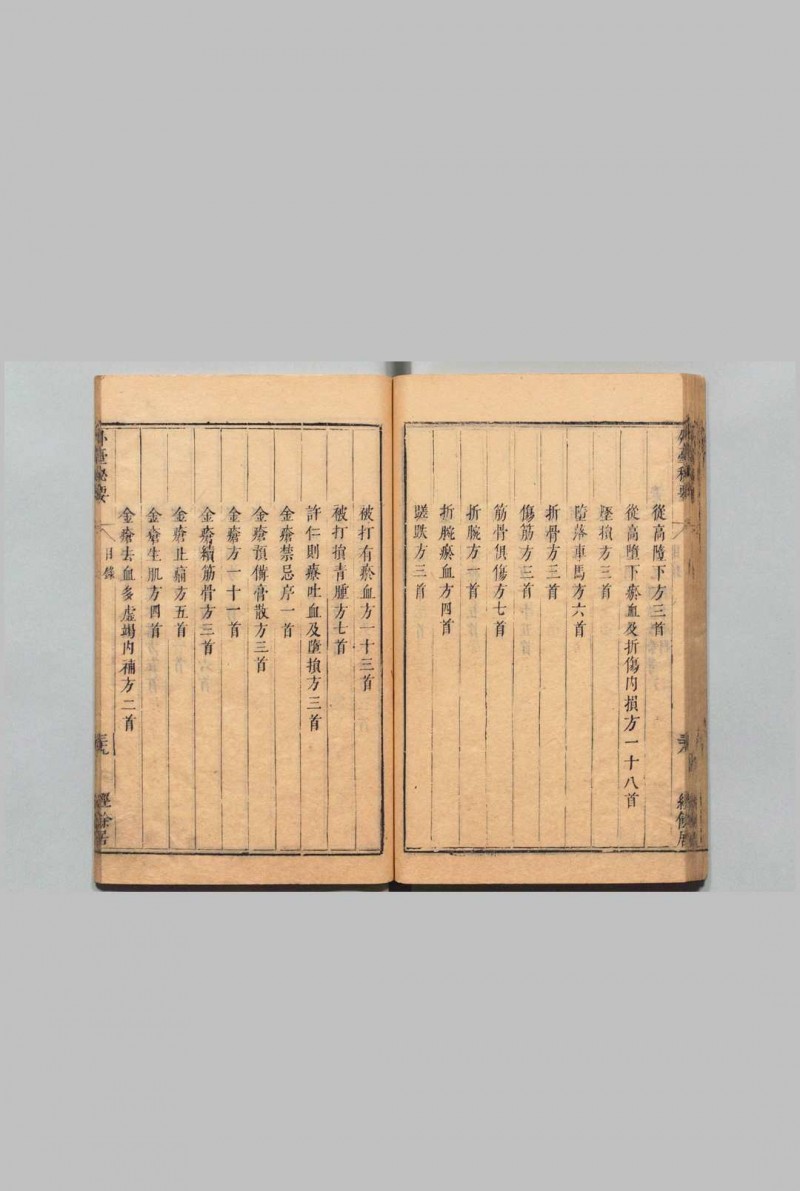 從高墮下方三首
從高墮下瘀血及折傷内損方一十八首
墜損方三首
墮落車馬方六首
折骨方三首
傷筋方三首
筋骨俱傷方七首
折腕方一首
折腕瘀血方四首
蹉跌方三首
被打有瘀血方一十三首
被打損青腫方七首
許仁則療吐血及墮損方三首
金瘡禁忌序一首
金瘡預備膏散方三首
金瘡方一十一首
金瘡續筋骨方三首
金瘡止痛方五首
金瘡生肌方四首
金瘡去血多虛竭内補方二首
外臺秘要
目錄
經餘居